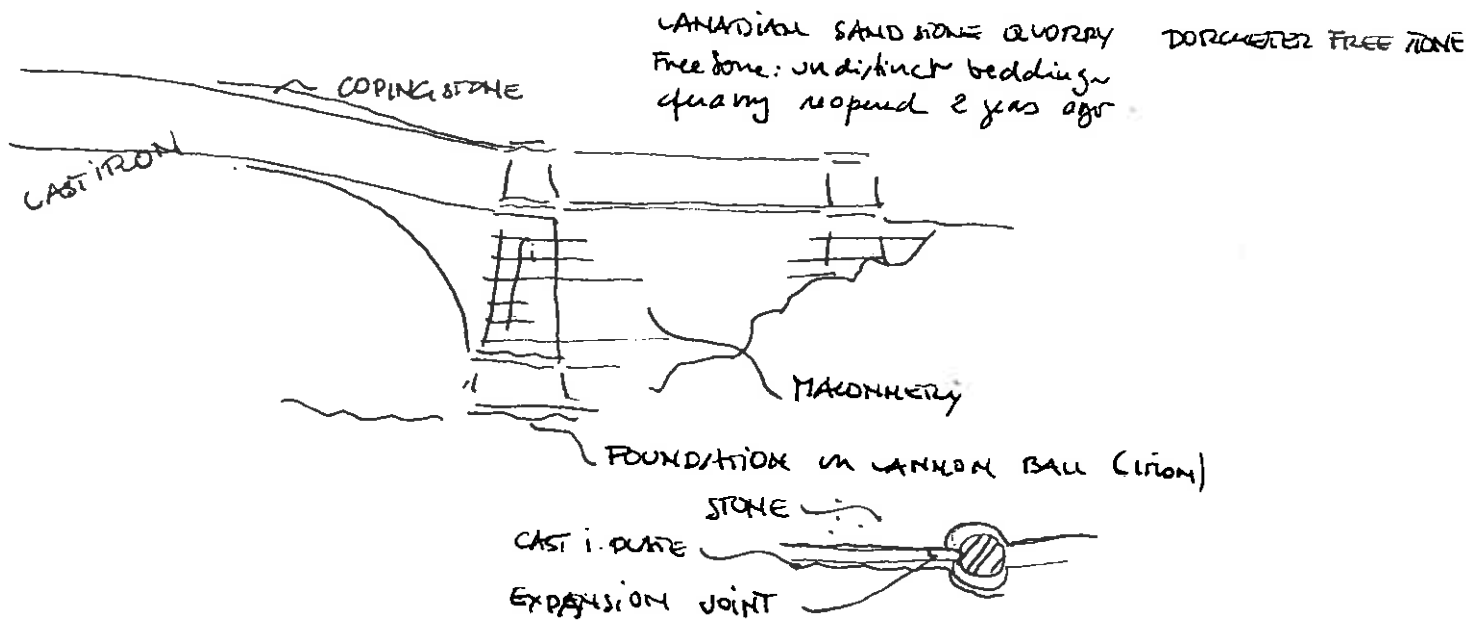 CANADIAN SANDSTONE QUORRY DORCHETER FREE STONE
Free stone: undistinct bedding
quarry reopened 2 years ago
COPINGSTONE
CAST IRON
MACONNERY
FOUNDATION on CANNON BALL (IRON)
STONE
CAST i. PLATE
EXPANSION JOINT